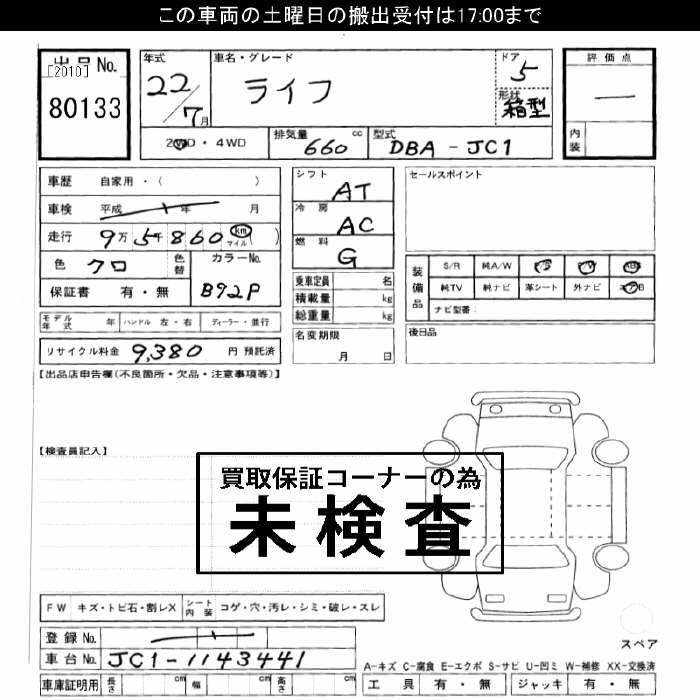 この車両の土曜日の搬出受付は17:00まで
出品No. [2010] 80133
年式 22/7月
車名・グレード ライフ
ドア 5
形状 箱型
評価点 —
内装
2WD・4WD
排気量 660 cc
型式 DBA-JC1
車歴 自家用・( )
車検 平成 年 月
走行 9万5千860 km マイル ( )
色 クロ
色替
カラーNo. B92P
保証書 有・無
モデル年式 年 ハンドル 左・右 ディーラー・並行
リサイクル料金 9,380 円 預託済
シフト AT
冷房 AC
燃料 G
乗車定員 名
積載量 kg
総重量 kg
名変期限 月 日
セールスポイント
装備品 S/R 純A/W P/S P/W ABS
純TV 純ナビ 革シート 外ナビ エアB
ナビ型番:
後日品
【出品店申告欄(不良箇所・欠品・注意事項等)】
【検査員記入】
買取保証コーナーの為
未検査
FW キズ・トビ石・割レX シート内装 コゲ・穴・汚レ・シミ・破レ・スレ
登録No.
車台No. JC1-1143441
車庫証明用 長さ cm 幅 cm 高さ cm
スペア
A-キズ C-腐食 E-エクボ S-サビ U-凹ミ W-補修 XX-交換済
工具 有・無 ジャッキ 有・無